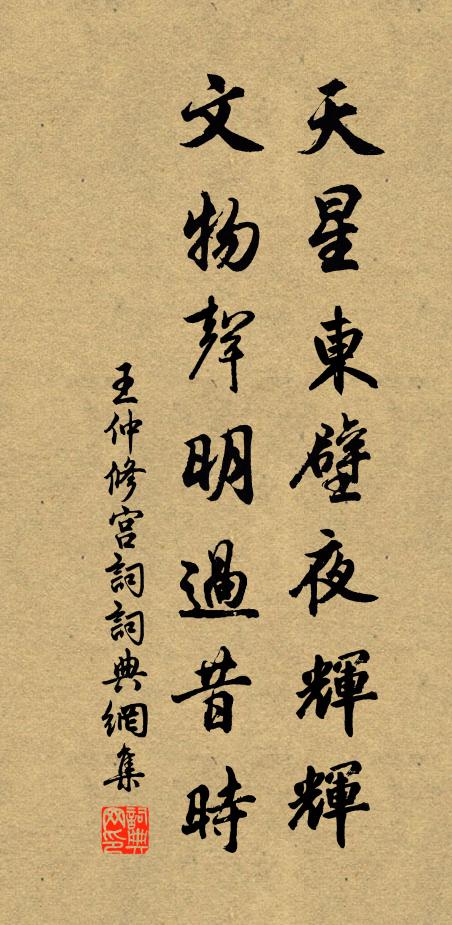 天星東壁夜輝輝
文物聲明過昔時
王仲修宮詞詞典網集
詞典網印